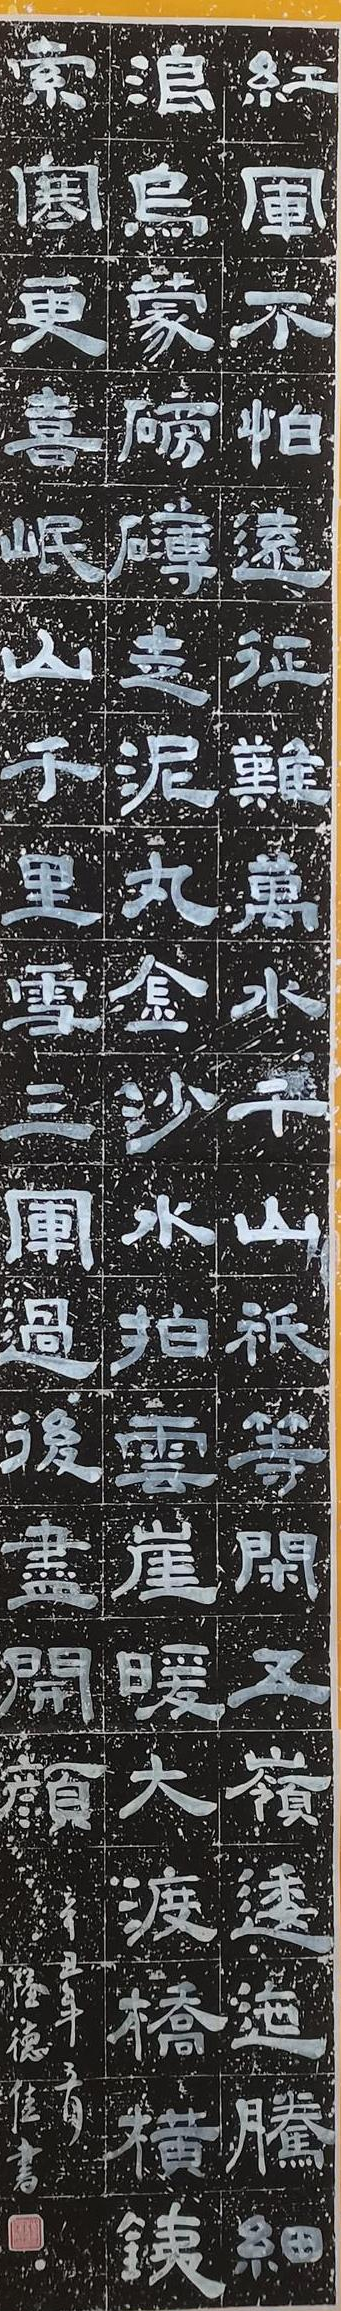 紅軍不怕遠征難萬水千山祇等閑又嶺逶迤騰細
浪烏蒙磅礴走泥丸金沙水拍雲崖暖大渡橋橫鉄
索寒更喜岷山千里雪三軍過後盡開顔
辛丑年 德佳書